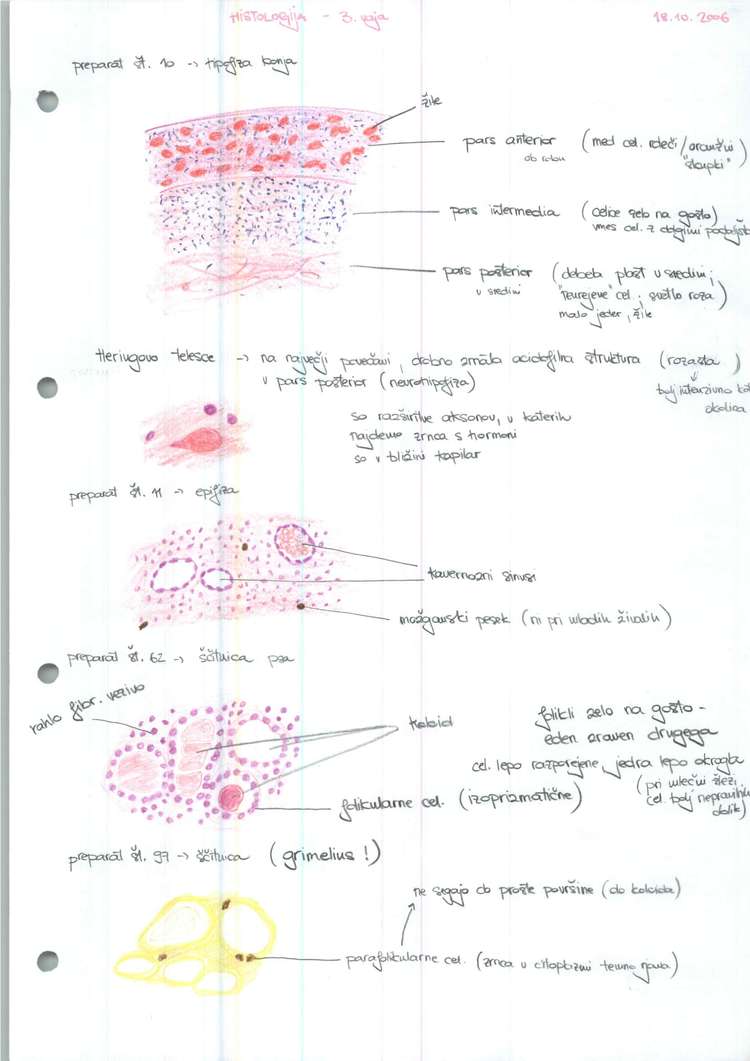 HISTOLOGIJA - 3. vaja
18.10.2006
preparat št. 10 → hipofiza konja
žile
pars anterior (med cel. rdeči/oranžni
ob robu "škupki")
pars intermedia (celice zelo na gosto)
vmes cel. z dolgimi podaljš
pars posterior (debela plast v sredini;
v sredini cel.; svetlo roza)
malo jeder, žile
Heringovo telesce → na največji povečavi, drobno zrnata acidofilna struktura (rozasta)
v pars posterior (nevrohipofiza)
bolj intenzivno kot
okolica
so razširitve aksonov, v katerih
najdemo zrnca s hormoni
so v bližini kapilar
preparat št. 11 → epifiza
kavernozni sinusi
možganski pesek (ni pri mladih živalih)
preparat št. 62 → ščitnica psa
rahlo fibr. vezivo
koloid
folikli zelo na gosto -
eden zraven drugega
cel. lepo razporejene, jedra lepo okrogla
(pri mlečni žlezi
cel. bolj nepravilnih
oblik)
folikularne cel. (izoprizmatične)
preparat št. 97 → ščitnica (grimelius!)
ne segajo ob proste površine (do koloida)
parafolikularne cel. (zrnca v citoplazmi temno rjava)